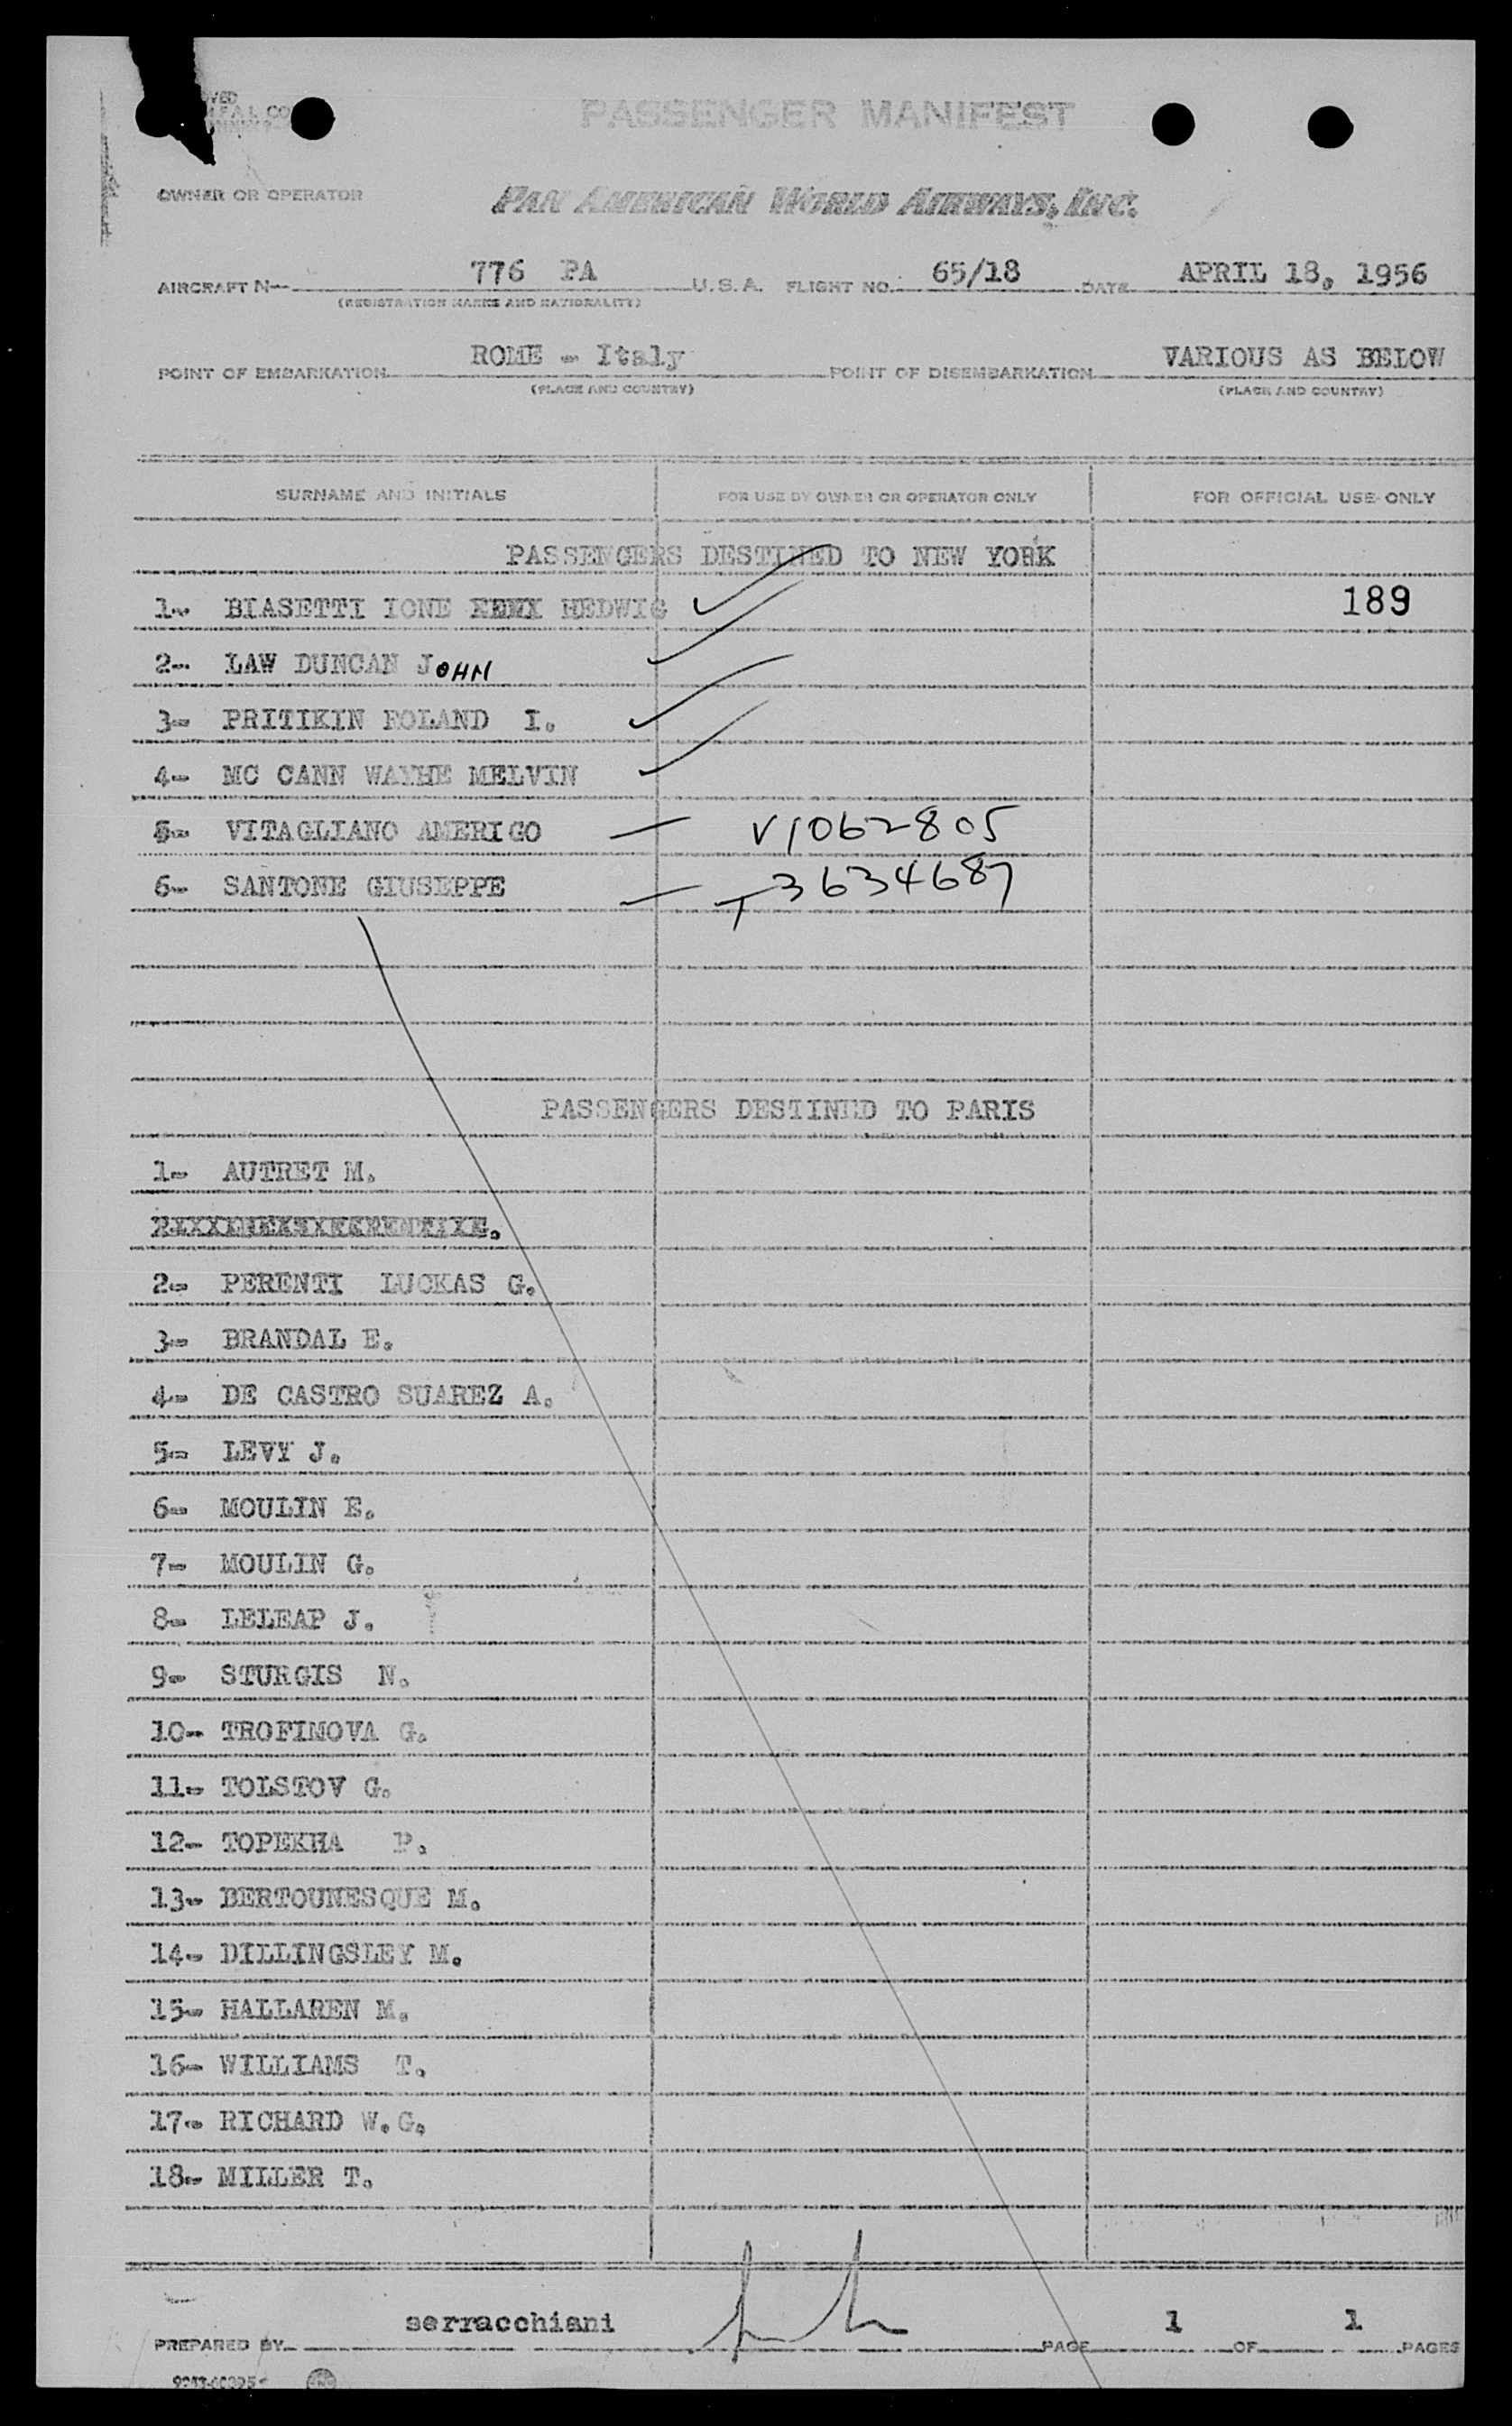 PASSENGER MANIFEST
OWNER OR OPERATOR PAN AMERICAN WORLD AIRWAYS, INC.
AIRCRAFT N— 776 PA U.S.A. FLIGHT NO. 65/18 DATE APRIL 18, 1956
(REGISTRATION MARKS AND NATIONALITY)
POINT OF EMBARKATION ROME - Italy POINT OF DISEMBARKATION VARIOUS AS BELOW
(PLACE AND COUNTRY) (PLACE AND COUNTRY)
SURNAME AND INITIALS FOR USE BY OWNER OR OPERATOR ONLY FOR OFFICIAL USE ONLY
PASSENGERS DESTINED TO NEW YORK
1- BIASETTI IONE HEDWIG 189
2- LAW DUNCAN JOHN
3- PRITIKIN ROLAND I.
4- MC CANN WAYNE MELVIN
5- VITAGLIANO AMERIGO — V1062805
6- SANTONE GIUSEPPE — T3634687
PASSENGERS DESTINED TO PARIS
1- AUTRET M.
2- PERENTI LUCKAS G.
3- BRANDAL E.
4- DE CASTRO SUAREZ A.
5- LEVY J.
6- MOULIN E.
7- MOULIN G.
8- LELEAP J.
9- STURGIS N.
10- TROFIMOVA G.
11- TOLSTOV G.
12- TOPEKHA P.
13- BERTOUNESQUE M.
14- DILLINGSLEY M.
15- HALLAREN M.
16- WILLIAMS T.
17- RICHARD W.G.
18- MILLER T.
PREPARED BY serracchiani PAGE 1 OF 1 PAGES